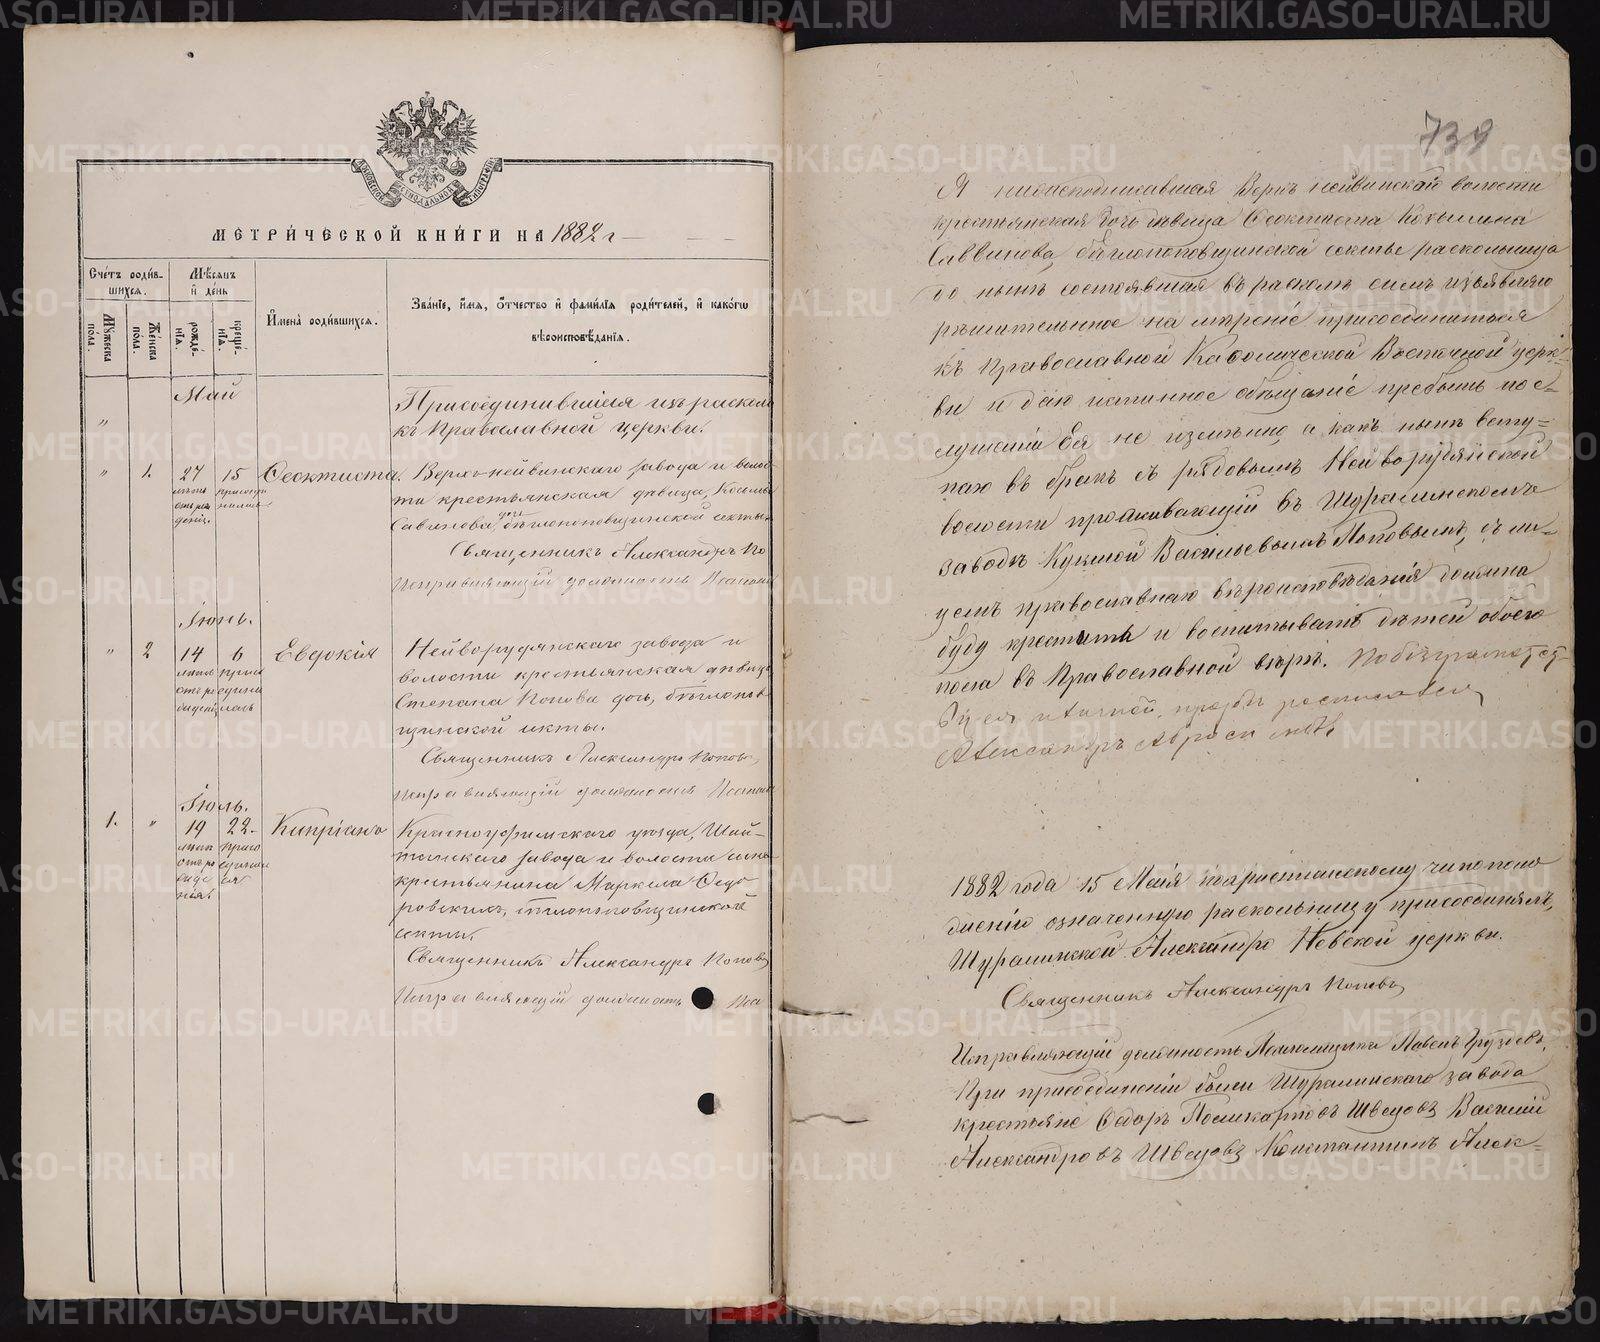 МЕТРИ́ЧЕСКОЙ КНИ́ГИ НА 1882 г
Сче́тъ роди́в-
шихся.
Мѣ́сяцъ
и де́нь
Имена̀ роди́вшихся.
Зва́нїе, и́мя, ѻ́тчество и҆ фами́лїя роди́телей, и҆ како́гѡ
вѣроисповѣ́данїя.
Му́жеска
по́ла.
Же́нска
по́ла.
рожде́-
нїя.
креще́-
нїя.
Май
Присоединившіяся изъ раскола
къ Православной церкви.
" 1. 27 15 Ѳеоктиста. Верхъ-нейвинскаго завода и воло-
сти крестьянская дѣвица, Козьмы
Саввинова дочь бѣглопоповщинской секты.
лѣтъ
отъ ро
деніи.
присоеди
нилась
Священникъ Александръ По
Исправляющій должность Псалом
Іюнь.
" 2 14 6 Евдокія Нейворудянскаго завода и
волости крестьянская дѣвица
Степана Попова дочь, бѣглопопов
щинской секты.
Священникъ Александръ Поповъ
Исправляющій должность Псалом
Іюль.
1. " 19 22 Кипріанъ Красноуфимскаго уѣзда, Шай-
танскаго завода и волости сынъ
крестьянина Маркела Ѳедо
ровскихъ, бѣглопоповщинской
секты.
Священникъ Александръ Поповъ
Исправляющій должность Пса
739
Я нижеподписавшая Верхъ нейвинской волости
крестьянская дочь дѣвица Ѳеоктиста Козьмина
Саввинова, бѣглопоповщинской секты раскольница
до нынѣ состоявшая въ расколѣ симъ изъявляю
рѣшительное на мѣреніе присоединиться
къ Православной Каѳолической Восточной церк-
ви и даю истинное обѣщаніе пребыть въ пос-
лушаніи Ея не измѣнно, а какъ нынѣ всту-
паю въ бракъ съ рядовымъ Нейворудянской
волости проживающій въ Шуралинскомъ
заводѣ Кузьмой Васильевымъ Поповымъ, съ ли-
цемъ православнаго вѣроисповѣданія должна
буду крестить и воспитывать дѣтей обоего
пола въ Православной вѣрѣ. По безграмотст-
ву ея и личной прозьбѣ росписался
Александръ
1882 года 15 Маія по христіанскому чиноположе
дненію означенную раскольницу присоединилъ,
Шуралинской Александро Невской церкви.
Священникъ Александръ Поповъ
Исправляющій должность Псаломщика Павелъ Груздевъ.
При присоединеніи были Шуралинскаго завода
крестьяне Ѳедоръ Поликарповъ Швецовъ Василій
Александровъ Швецовъ Константинъ Алек-